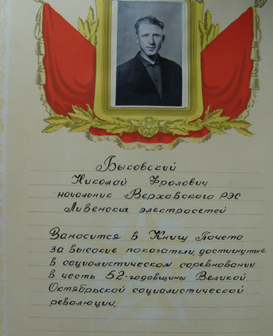 Быковский
Николай Фролович
начальник Верховского РЭС
Ливенских электросетей
Заносится в Книгу Почета
за высокие показатели, достигнутые
в социалистическом соревновании
в честь 52-годовщины Великой
Октябрьской социалистической
революции.